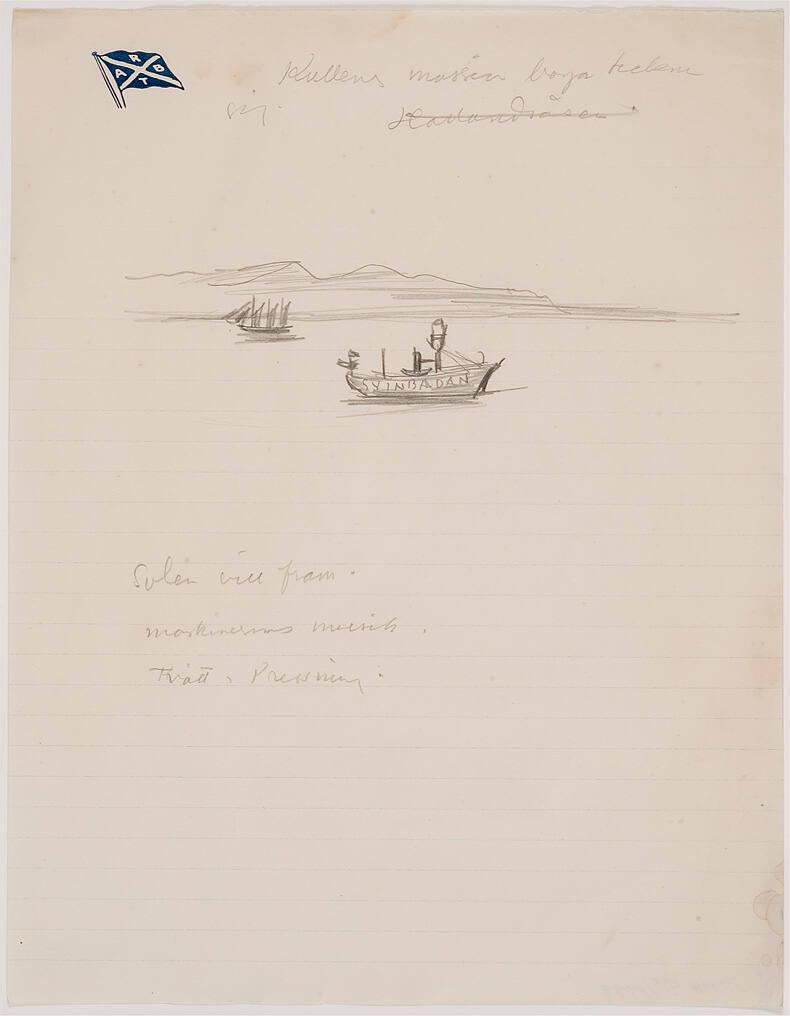 R
A B
T
Kullens massiv börja teckna
sig.
Hallandsåsen.
SVINBADAN
Solen vill fram.
maskinernas musik.
Tvätt, Pressning.